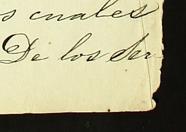 s cuales
De los Ser